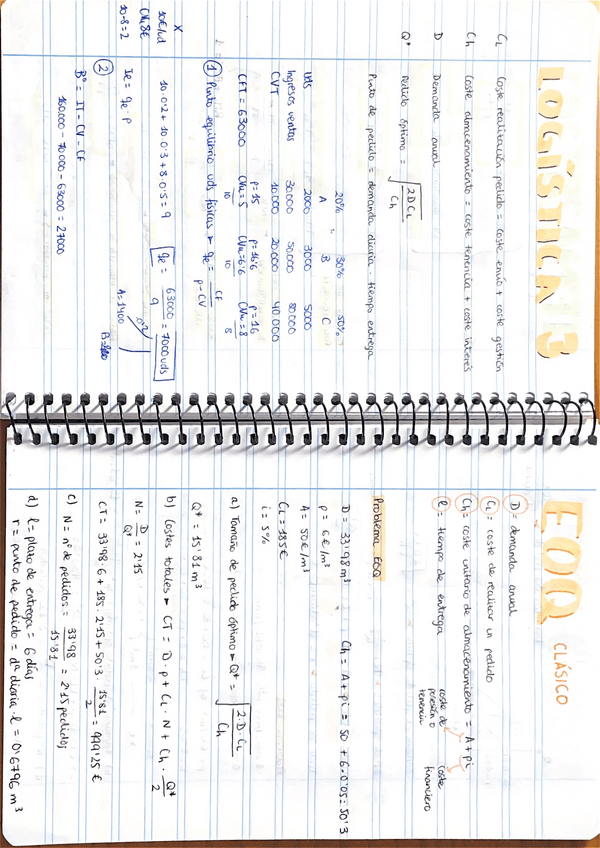 LOGÍSTICA 3
CL Coste realización pedido = coste envío + coste gestión
Ch Coste almacenamiento = coste tenencia + coste interés
D Demanda anual
Q* Pedido óptimo = √(2·D·CL / Ch)
Punto de pedido = demanda diaria · tiempo entrega
20% 30% 50%
A B C
Uds 2000 3000 5000
Ingresos ventas 30000 50000 80000
CVT 10.000 20.000 40.000
CFT = 63000 p=15 p=16'6 p=16
CVu=5 CVu=6'6 CVu=8
10 10 8
① Punto equilibrio uds físicas ► qe = CF / p-CV
10·0'2 + 10·0'3 + 8·0'5 = 9 qe = 63000 / 9 = 7000 uds
X
10€/ud
CVu 8€
10-8=2
0'2
A=1400
② Ie = qe · p
Bº = IT - CV - CF
160.000 - 70000 - 63000 = 27000
EOQ CLÁSICO
D = demanda anual
CL = coste de realizar un pedido
Ch = coste unitario de almacenamiento = A + pi
coste de posesión o tenencia
coste financiero
l = tiempo de entrega
Problema EOQ
D = 33'98 m³ Ch = A + pi = 50 + 6·0'05 = 50'3
p = 6 €/m³
A = 50 €/m³
CL = 185 €
i = 5%
a) Tamaño de pedido óptimo ► Q* = √(2·D·CL / Ch)
Q* = 15'81 m³
b) Costes totales ► CT = D·p + CL·N + Ch · Q*/2
N = D / Q* = 2'15
CT = 33'98·6 + 185·2'15 + 50'3 · 15'81/2 = 999'25 €
c) N = nº de pedidos = 33'98 / 15'81 = 2'15 pedidos
d) l = plazo de entrega = 6 días
r = punto de pedido = dª diaria · l = 0'6796 m³